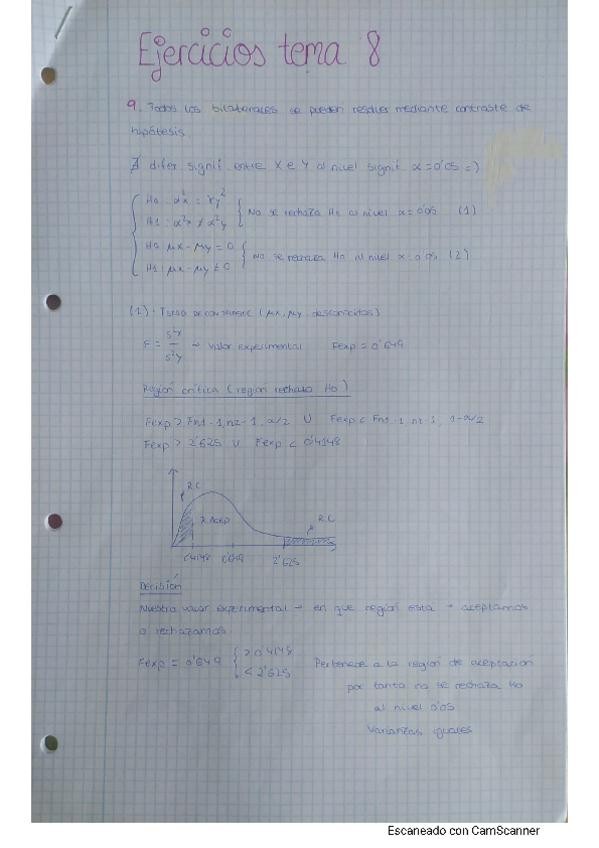 Ejercicios tema 8
9. Todos los bilaterales se pueden resolver mediante contraste de
hipótesis
∄ difer signif. entre X e Y al nivel signif α = 0'05 =)
H0: σ²x = σy²
H1: σ²x ≠ σ²y } No se rechaza H0 al nivel α = 0'05 (1)
H0: μx - μy = 0
H1: μx - μy ≠ 0 } No se rechaza H0 al nivel α = 0'05 (2)
(1) · (μx, μy desconocidas)
F = S²x / S²y → valor experimental Fexp = 0'649
Región crítica (región rechazo H0)
Fexp > Fn1-1, n2-1, α/2 U Fexp < Fn1-1, n2-1, 1-α/2
Fexp > 2'625 U Fexp < 0'4148
R.C
R. Acep
R.C
0'4148 0'649 2'625
Decisión
Nuestro valor experimental → en que región está → aceptamos
o rechazamos
Fexp = 0'649 { > 0'4148
< 2'625
Pertenece a la región de aceptación
por tanto no se rechaza H0
al nivel 0'05
Varianzas iguales
Escaneado con CamScanner